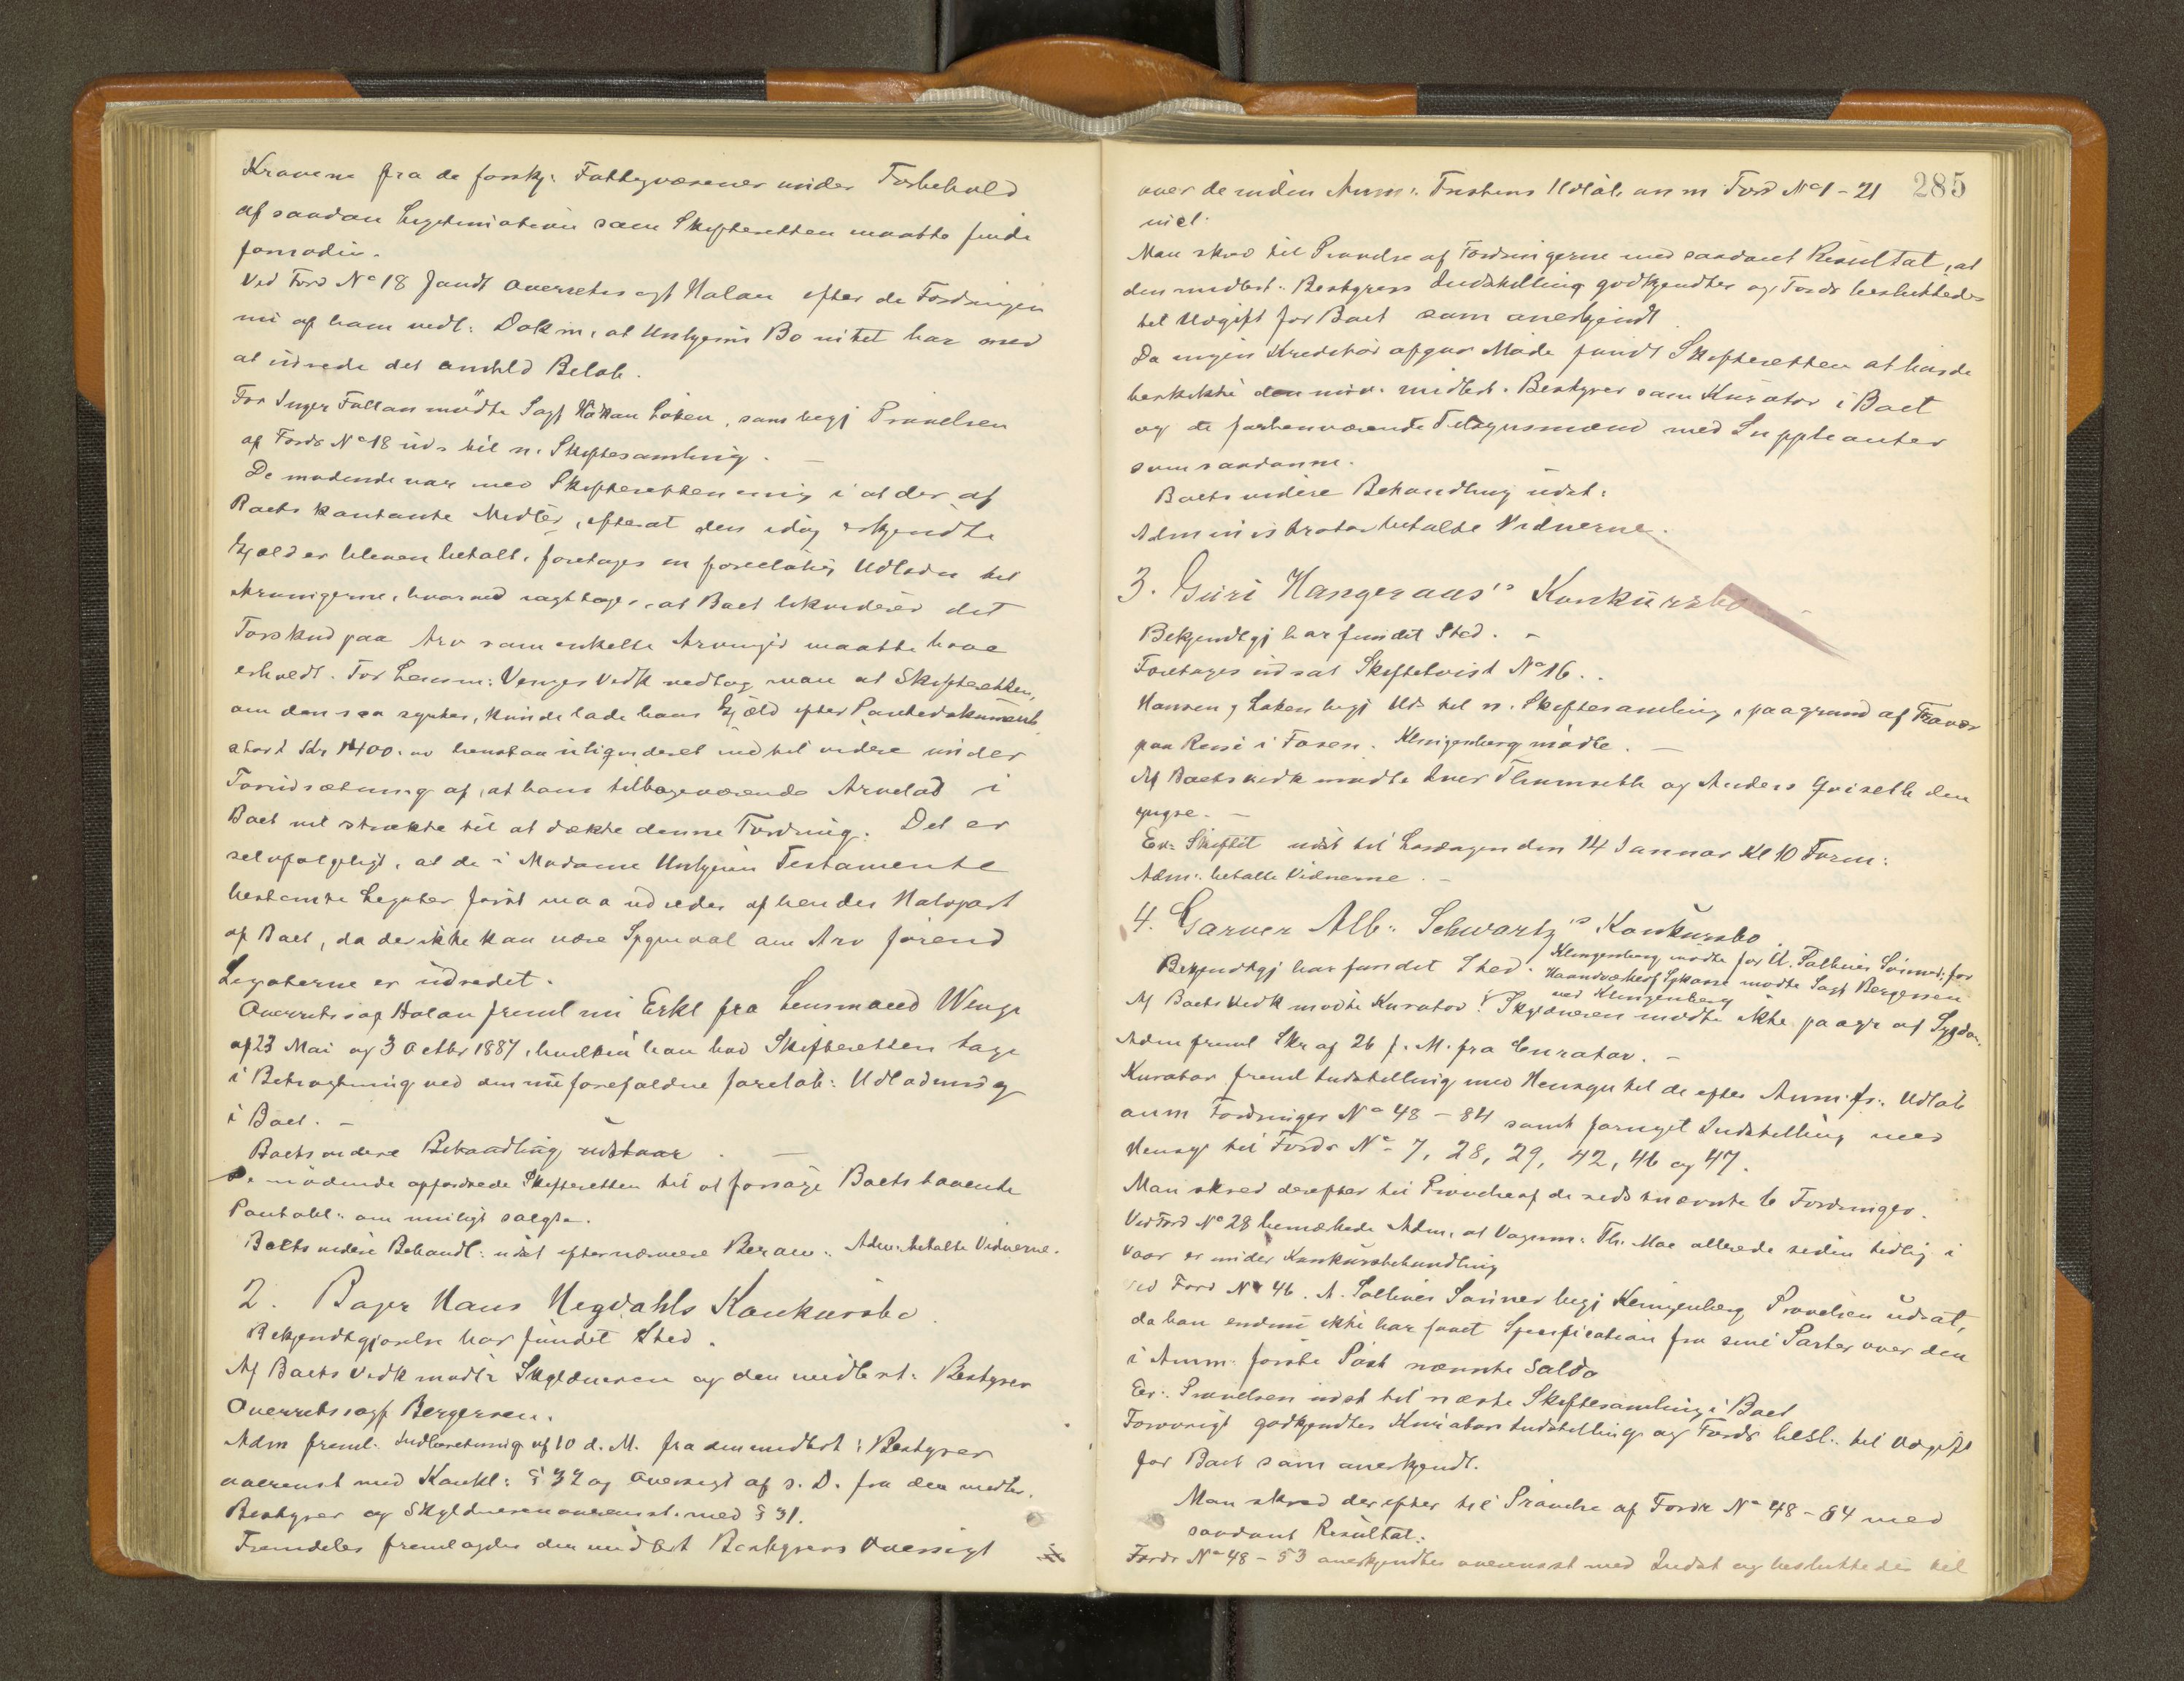 Kravene fra de forskj: Fattigvæsener under Forbehold
af saadan Legitimation som Skifteretten maatte finde
fornøden.
Ved Ford No 18 fandt Overretssagf Holan efter de Fordringen
nu af ham vedl: Dokm, at Bo intet har med
at udrede det anmeldte Beløb.
For Inger Fallan mødte Sagf Håkan Løken, som begj Prøvelsen
af Fordr No 18 uds til n. Skiftesamling. —
De mødende var med Skifteretten enig i at der af
Boets kontante Midler, efterat den idag erkjendte
Gjæld er bleven betalt, foretages en foreløbig Udlodn til
Arvingerne, hvorved iagttages, at Boet likviderer det
Forskud paa Arv som enkelte Arvinger maatte have
erholdt. For Lensm: Venges Vedk vedtog man at Skifteretten,
om den saa syntes, kunde lade hans Gjæld efter Pantedokument
stort Kr 1400. henstaa uligvideret indtil videre under
Forudsætning af, at hans tilbageværende Arvelod i
Boet vil strække til at dække denne Fordring. Det er
selvfølgeligt, at de i Madame Testamente
bestemte Legater først maa udredes af hendes Halvpart
af Boet, da der ikke kan være Spørsmaal om Arv førend
Legaterne er udredet.
Overretssagf Holan freml nu Erkl fra Lensmand Wenge
af 23 Mai og 3 Octbr 1887, hvilken han bad Skifteretten tage
i Betragtning ved den nu forefaldne foreløb: Udlodning
i Boet. —
Boets videre Behandling udstaar. —
De mødende opfordrede Skifteretten til at forsøge Boets havende
Pantobl: om muligt solgte.
Boets videre Behandl: udsat efter nærmere Beram: Adm. betalte Vidnerne.
2. Bager Hans Hegdahls Konkursbo.
Bekjendtgjørelse har fundet Sted.
Af Boets Vedk mødte Skyldneren og den midlert: Bestyrer
Overretssagf Bergersen.
Adm freml. Indberetning af 10 d. M. fra den midlert: Bestyrer
overenst med Konkl: § 32 og Oversigt af s. D. fra den midler.
Bestyrer og Skyldneren overenst. med § 31.
Fremdeles fremlagdes den midlert Bestyrers Oversigt
285
over de inden Anm: Fristens Udløb anm Ford No 1 – 21
incl.
Man skred til Prøvelse af Fordringerne med saadant Resultat, at
den midlert: Bestyrers Indstilling godkjendtes og Fordr besluttedes
til Udgift for Boet som anerkjendt.
Da ingen Kreditor afgav Møde fandt Skifteretten at burde
beskikke den nuv. midlert. Bestyrer som Kurator i Boet
og de forhenværende Tilsynsmænd med Suppleanter
som saadanne.
Boets videre Behandling udst:
Administrator betalte Vidnerne.
3. Guri Hangeraas's Konkursbo
Bekjendtgj har fundet Sted. –
Foretages udsat Skiftetvist No 16..
Hansen, Løken begj Uds til n. Skiftesamling, paagrund af Fravær
paa Reise i Fosen. Klingenberg mødte. —
Af Boets vedk mødte Iver Thomseth og Anders Hviseth den
yngre. —
Er: Skiftet udst til Lørdagen den 14 Januar Kl 10 Form:
Adm: betalte Vidnerne. –
4. Garver Alb: Schwartz's Konkursbo.
Bekjendtgj har fundet Sted. Klingenberg mødte for A. Solbergs Sønner, for
Haandværkerf Spkasse mødte Sagf Bergersen
ved Klingenberg
Af Boets Vedk mødte Kurator. Skyldneren mødte ikke paagr af Sygdom.
Adm freml Skr af 26 f. M. fra Curator. –
Kurator freml Indstilling med Hensyn til de efter Anm: fr: Udløb
anm Fordringer No 48 – 84 samt fornyet Indstilling med
Hensyn til Fordr No 7, 28, 29, 42, 46 og 47.
Man skred derefter til Prøvelse af de sidstnævnte 6 Fordringer.
Ved Ford No 28 bemærkede Adm, at Vognm: Th. Moe allerede siden tidlig i
Vaar er under Konkursbehandling
Ved Ford No 46. A. Sønner begj Klingenberg Prøvelsen udsat,
da han endnu ikke har faaet Specification fra sine Parter over den
i Anm: første Post nævnte Saldo
Er: Prøvelsen udst til næste Skiftesamling i Boet
Forøvrigt godkjendtes Kurators Indstilling og Fordr besl: til Udgift
for Boet som anerkjendt.
Man skred derefter til Prøvelse af Fordr No 48 – 84 med
saadant Resultat:
Fordr No 48 – 53 anerkjendtes overensst med Indst og besluttedes til